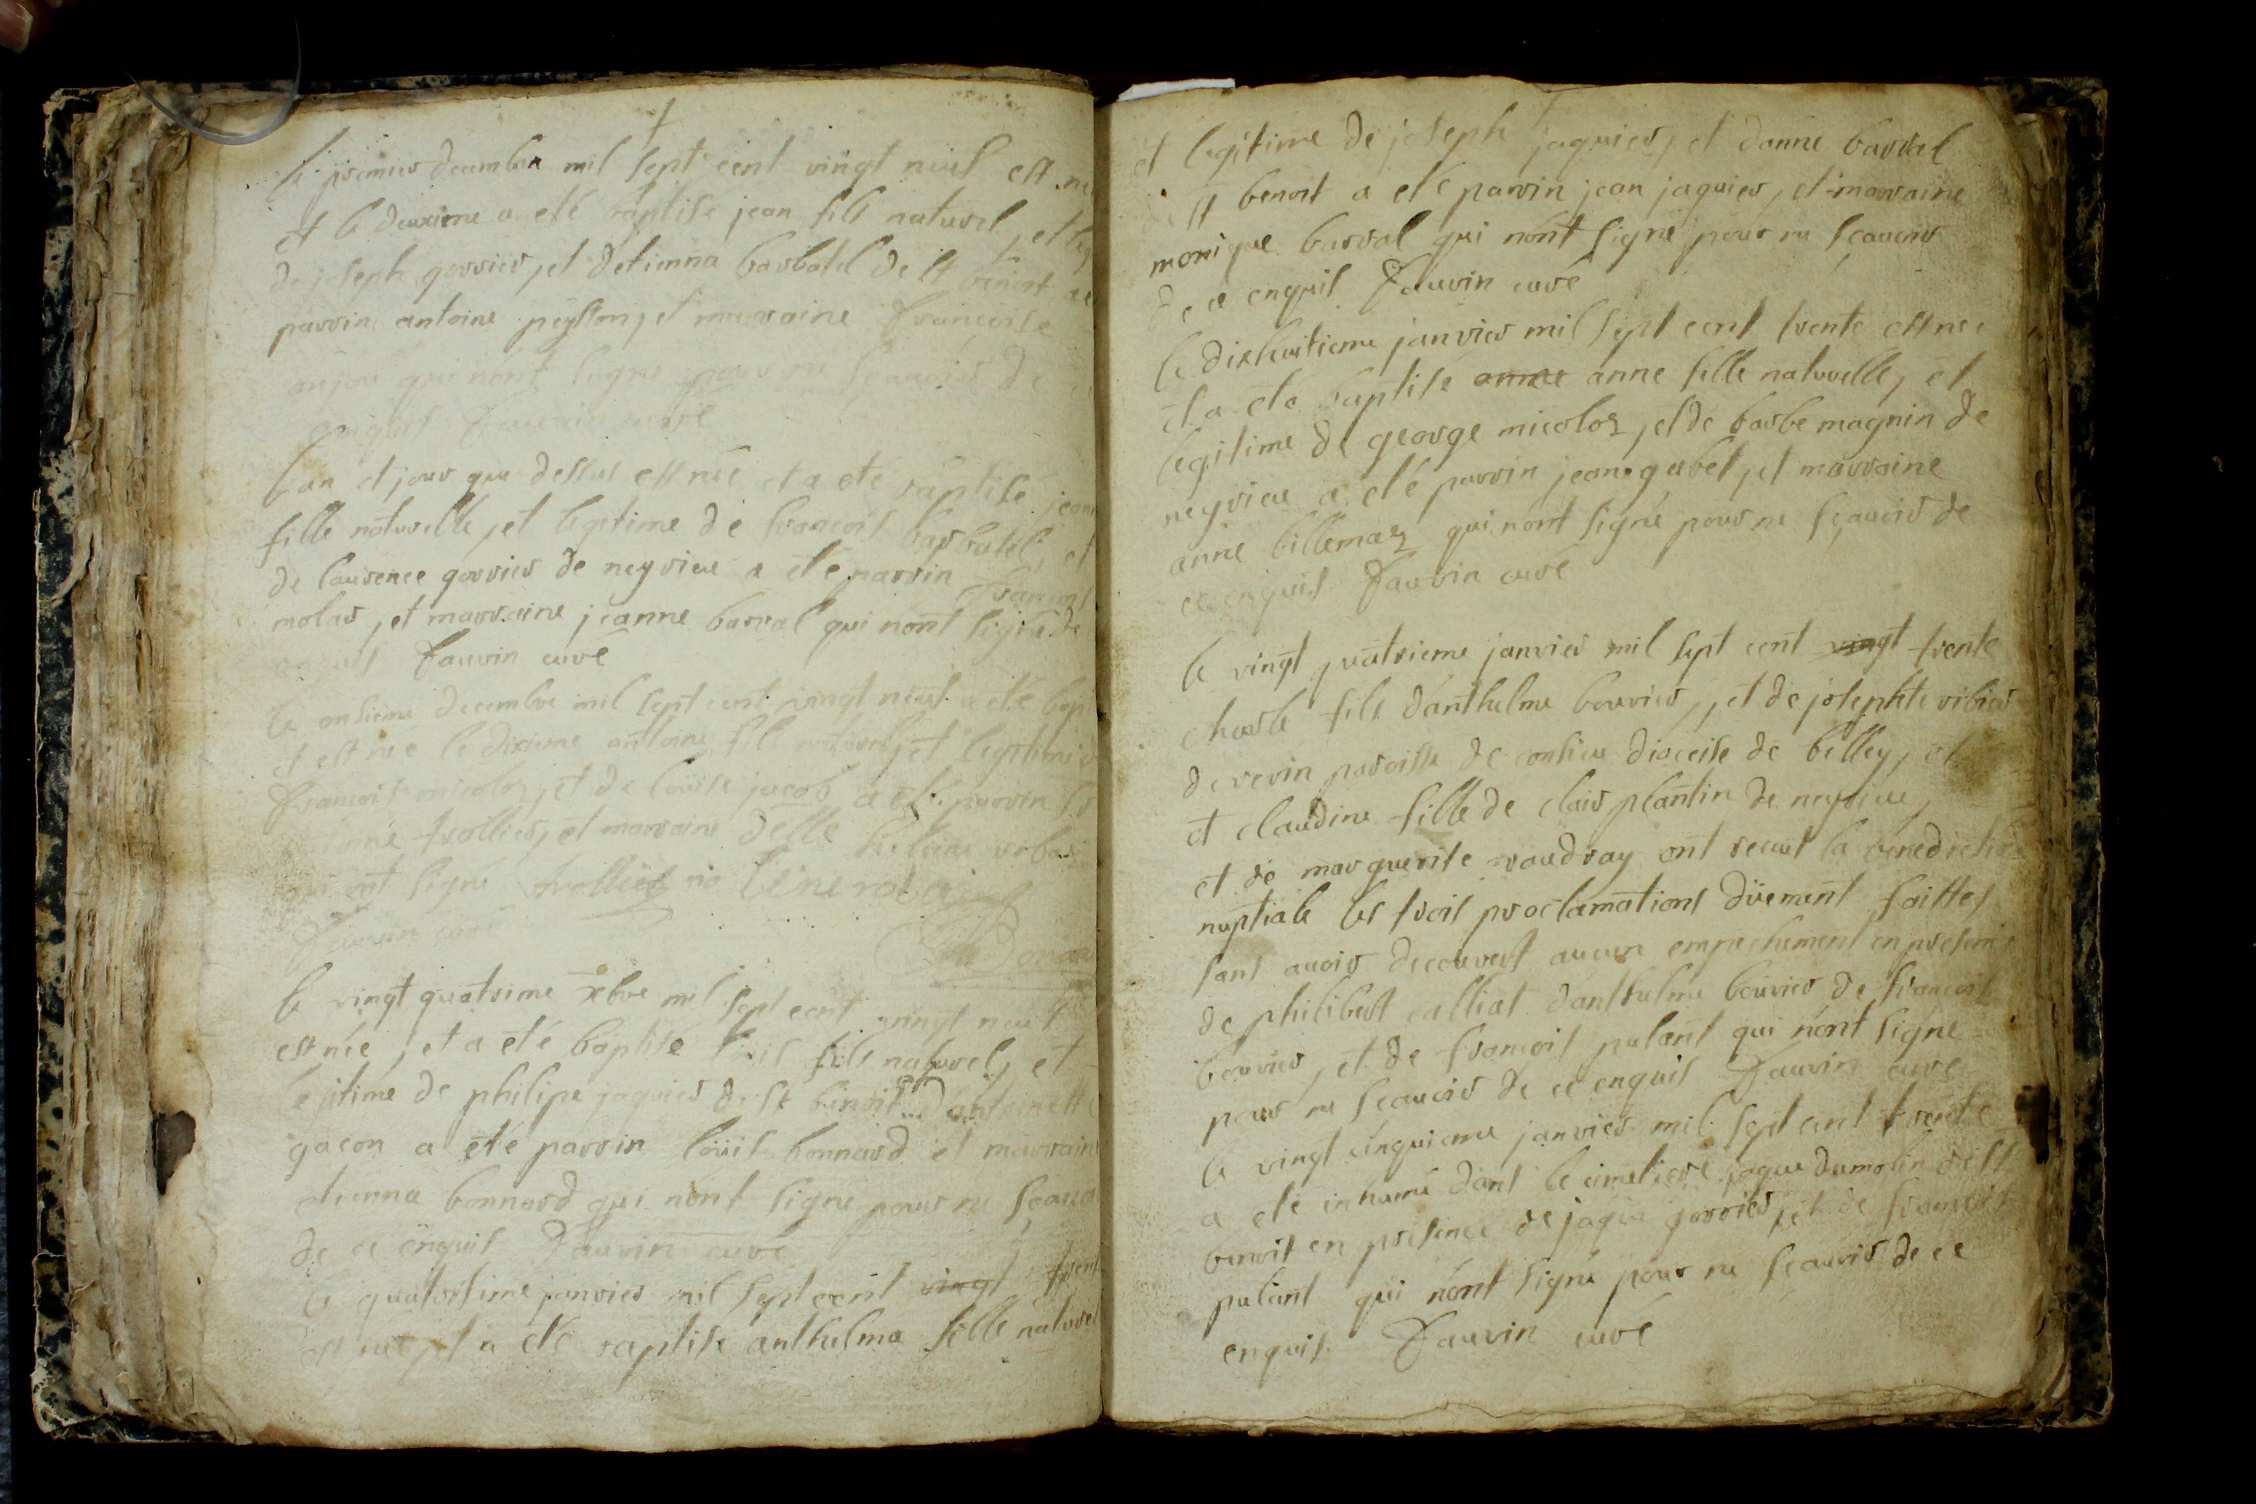 le premier decembre mil sept cent vingt neuf est né
et le deuxieme a eté baptise jean fils naturel, et leg
de joseph gorrier, et detienna barbatel de st benoit a e
parrin antoine peysson, et marraine francoise
anjou qui nont signe pour ne sçavoir de
enquis favrin curé
lan et jour que dessus est née et a eté baptisé jean
fille naturelle, et legitime de françois barbatel, et
de laurence gorrier de neyrieu a eté parrin francois
molar, et marraine jeanne barral qui nont signé de
enquis favrin curé
le onsieme decembre mil sept cent vingt neuf a eté bap
et est né le dixieme antoine fils naturel, et legitime d
francois micoloz, et de loüise jacob a eté parrin
trollier, et marraine delle
qui ont signé trollier
favrin curé
le vingt quatrieme xbre mil sept cent vingt neuf
est née, et a eté baptisé loüis fils naturel, et
legitime de philipe jaquier de st benoit et dantoinette
gacon a eté parrin loüis bonnard et marraine
etienna bonnard qui nont signe pour ne sçavoi
de ce enquis favrin curé
le quatorsieme janvier mil sept cent vingt trent
est née, et a eté baptise anthelma fille naturel
et legitime de joseph jaquier, et danne barral
de st benoit a eté parrin jean jaquier, et marraine
monique barral qui nont signé pour ne sçavoir
de ce enquis favrin curé
le dixhuitieme janvier mil sept cent trente est née
et a eté baptisé anne anne fille naturelle, et
legitime de george micoloz, et de barbe magnin de
neyrieu a eté parrin jean gerbet, et marraine
anne billemaz qui nont signé pour ne sçavoir de
ce enquis favrin curé
le vingt quatrieme janvier mil sept cent vingt trente
charle fils danthelme bouvier, et de josephte ribier
de vevrin paroisse de consieu dioceise de belley, et
et claudine fille de clair plantin de neyrieu,
et de marguerite vaudray ont receut la benediction
nuptiale les trois proclamations düement faittes
sans avoir decouvert aucun empechement en presence
de philibert calliat danthelme bouvier de francois
bouvier, et de françois pulant qui nont signe
pour ne sçavoir de ce enquis favrin curé
le vingt cinquieme janvier mil sept cent trente
a eté inhumé dans le cimetiere jaque dumolin de st
benoit en presence de jaque gorrier, et de francois
pulant qui nont signé pour ne sçavoir de ce
enquis favrin curé